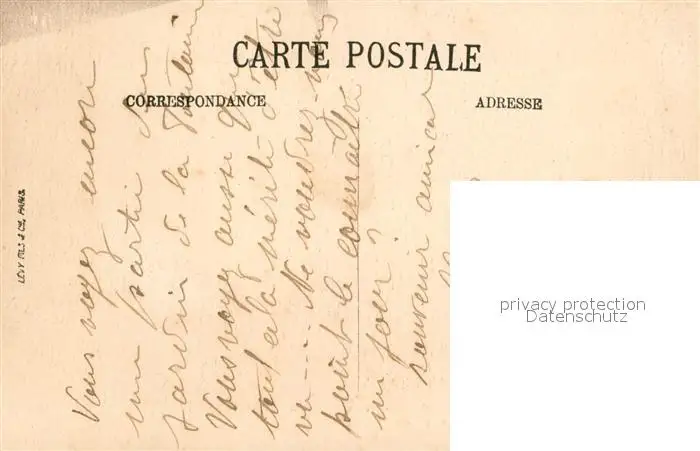 CARTE POSTALE
CORRESPONDANCE
ADRESSE
LÉVY FILS & Cie, PARIS
Vous voyez encore
une partie du
Jardin de la Fontaine
Vous voyez aussi que
tout cela mérite d'être
vu... Ne voudrez-vous
point le connaître
un jour?
souvenir amical
privacy protection
Datenschutz